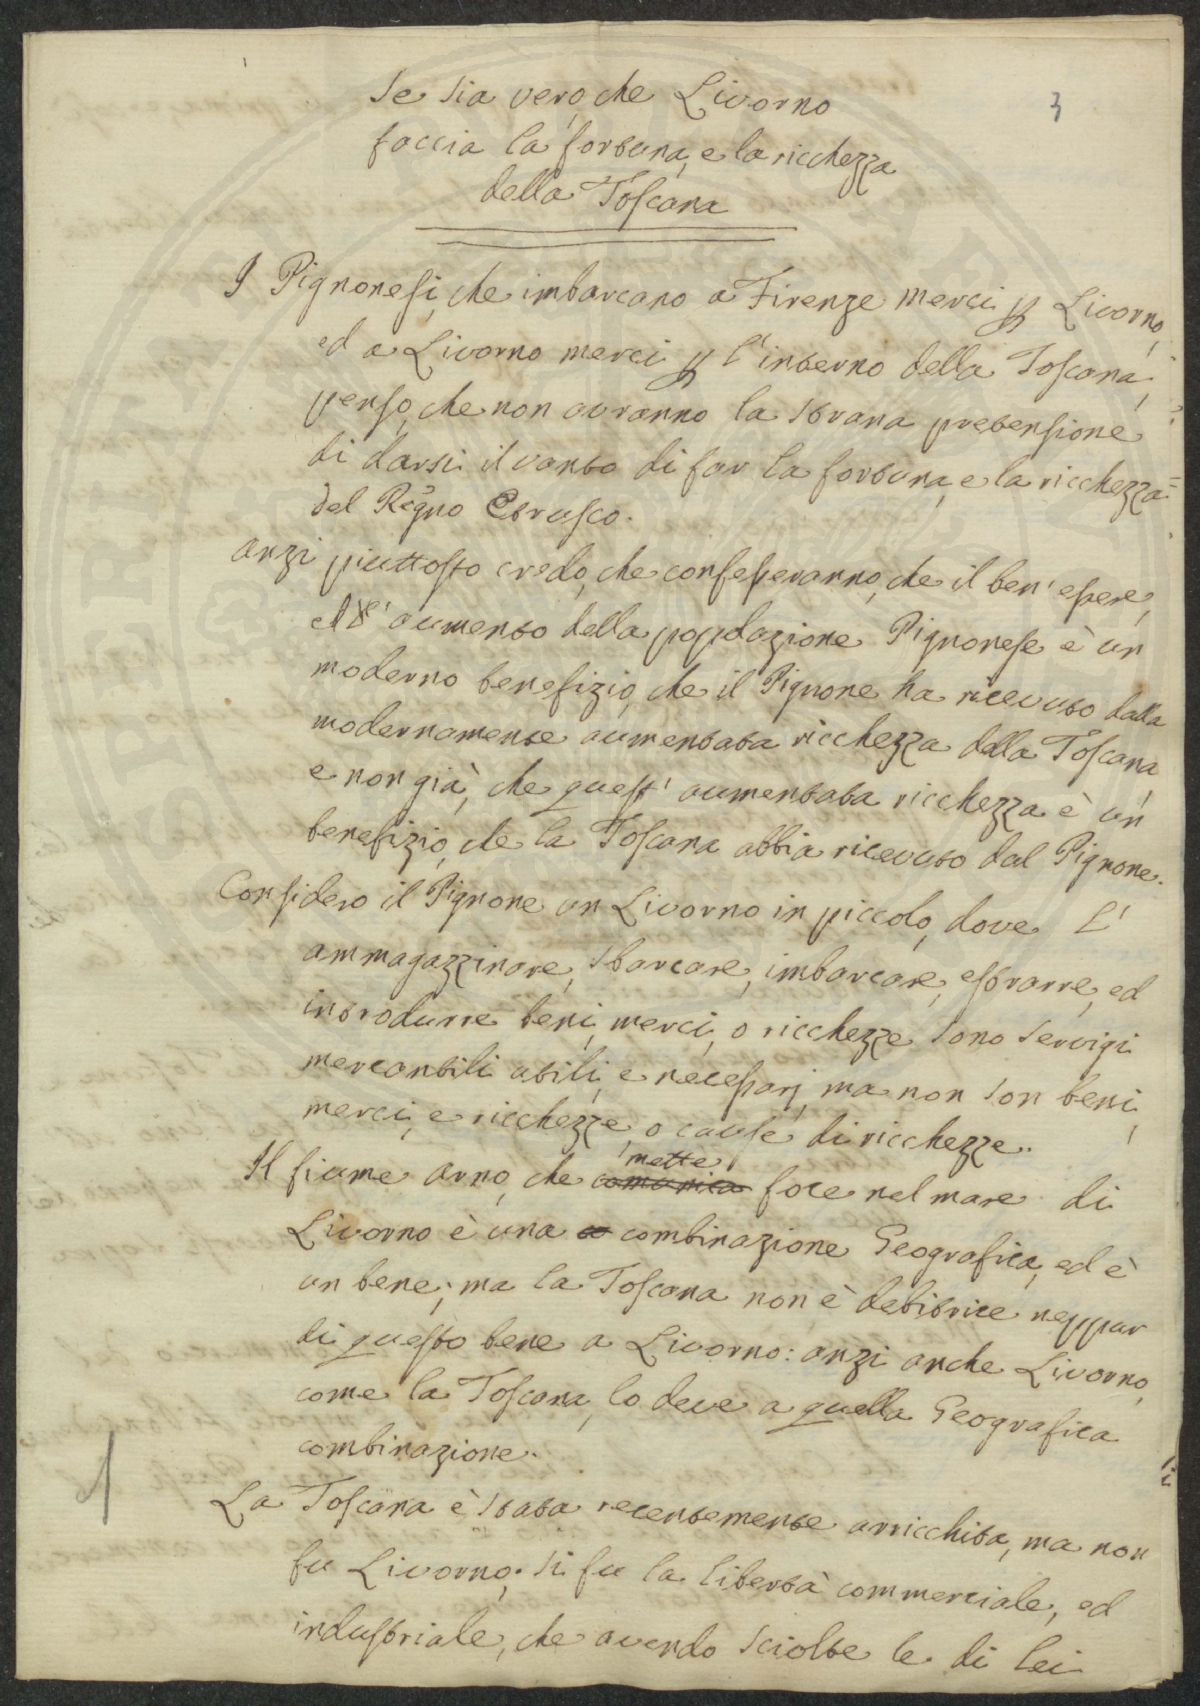 3
Se sia vero, che Livorno
faccia la fortuna, e la ricchezza
della Toscana
I Pignonesi, che imbarcano a Firenze merci p Livorno,
ed a Livorno merci p l'interno della Toscana,
penso, che non avranno la strana pretensione
di darsi il vanto di far la fortuna, e la ricchezza
del Regno Etrusco.
anzi piuttosto credo, che confesseranno, che il ben'essere,
e l'aumento della popolazione Pignonese è un
moderno benefizio, che il Pignone ha ricevuto dalla
modernamente aumentata ricchezza della Toscana
e non già, che quest'aumentata ricchezza è un
benefizio, che la Toscana abbia ricevuto dal Pignone.
Considero il Pignone un Livorno in piccolo, dove l'
ammagazzinare, sbarcare, imbarcare, estrarre, ed
introdurre beni, merci, o ricchezze sono servigi
mercantili utili, e necessarj, ma non son beni,
merci, e ricchezze, o cause di ricchezze.
mette
Il fiume arno, che comunica foce nel mare di
Livorno è una co combinazione Geografica, ed è
un bene; ma la Toscana non è debitrice neppur
di questo bene a Livorno: anzi anche Livorno,
come la Toscana, lo deve a quella Geografica
combinazione.
La Toscana è stata recentemente arricchita, ma non
fu Livorno; si fu la libertà commerciale, ed
industriale, che avendo sciolte le di lei